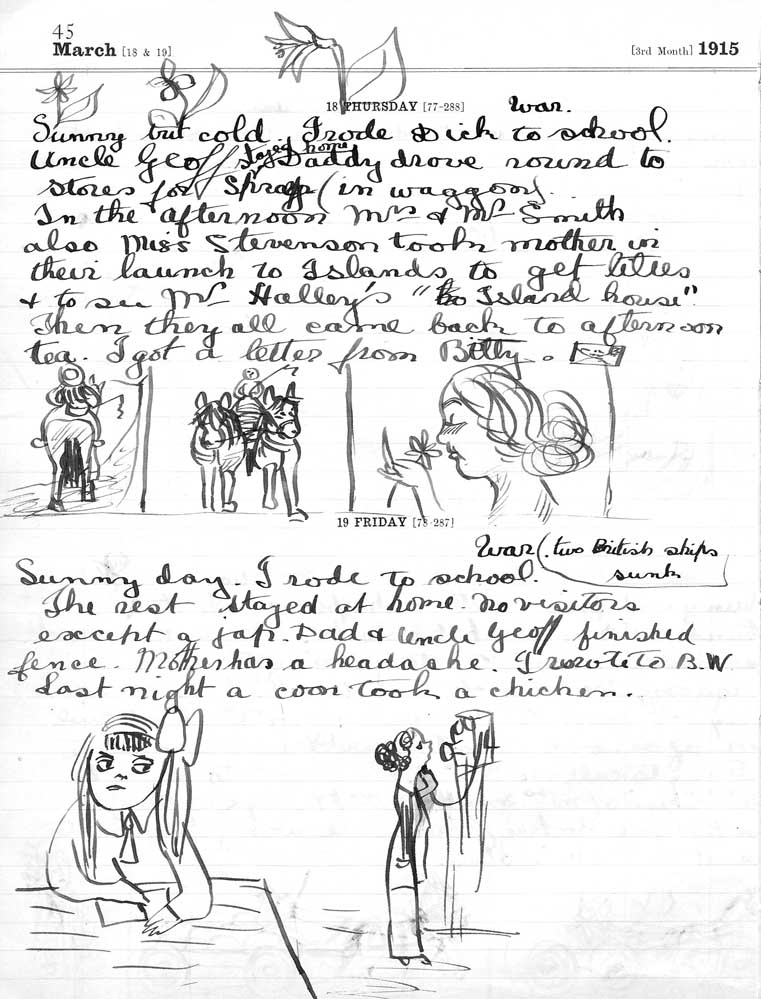 45
March [18 & 19] [3rd Month] 1915
18 THURSDAY [77-288] War.
Sunny but cold. I rode Dick to school.
Uncle Geoff stayed home Daddy drove round to
stores for Spray (in waggon).
In the afternoon Mrs & Mr Smith
also Miss Stevenson took mother in
their launch to Islands to get lilies
& to see Mr Halley's "Island house"
Then they all came back to afternoon
tea. I got a letter from Betty.
19 FRIDAY [78-287]
War (two British ships
sunk
Sunny day. I rode to school.
The rest stayed at home. No visitors
except a jap. Dad & Uncle Geoff finished
fence. Mother has a headache. I wrote to B.W.
Last night a coon took a chicken.